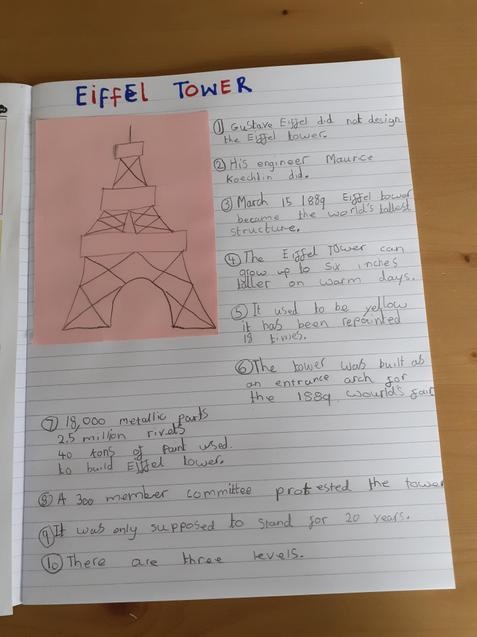 EiffEl TOWER
① Gustave Eiffel did not design
the Eiffel tower.
② His engineer Maurice
Koechlin did.
③ March 15 1889 Eiffel tower
became the world's tallest
structure.
④ The Eiffel Tower can
grow up to six inches
taller on warm days.
⑤ It used to be yellow
it has been repainted
18 times.
⑥ The tower was built as
an entrance arch for
the 1889 wourld's fair
⑦ 18,000 metallic parts
2,5 million rivets
40 tons of paint used.
to build Eiffel tower.
⑧ A 300 member committee protested the tower
⑨ It was only supposed to stand for 20 years.
⑩ There are three levels.